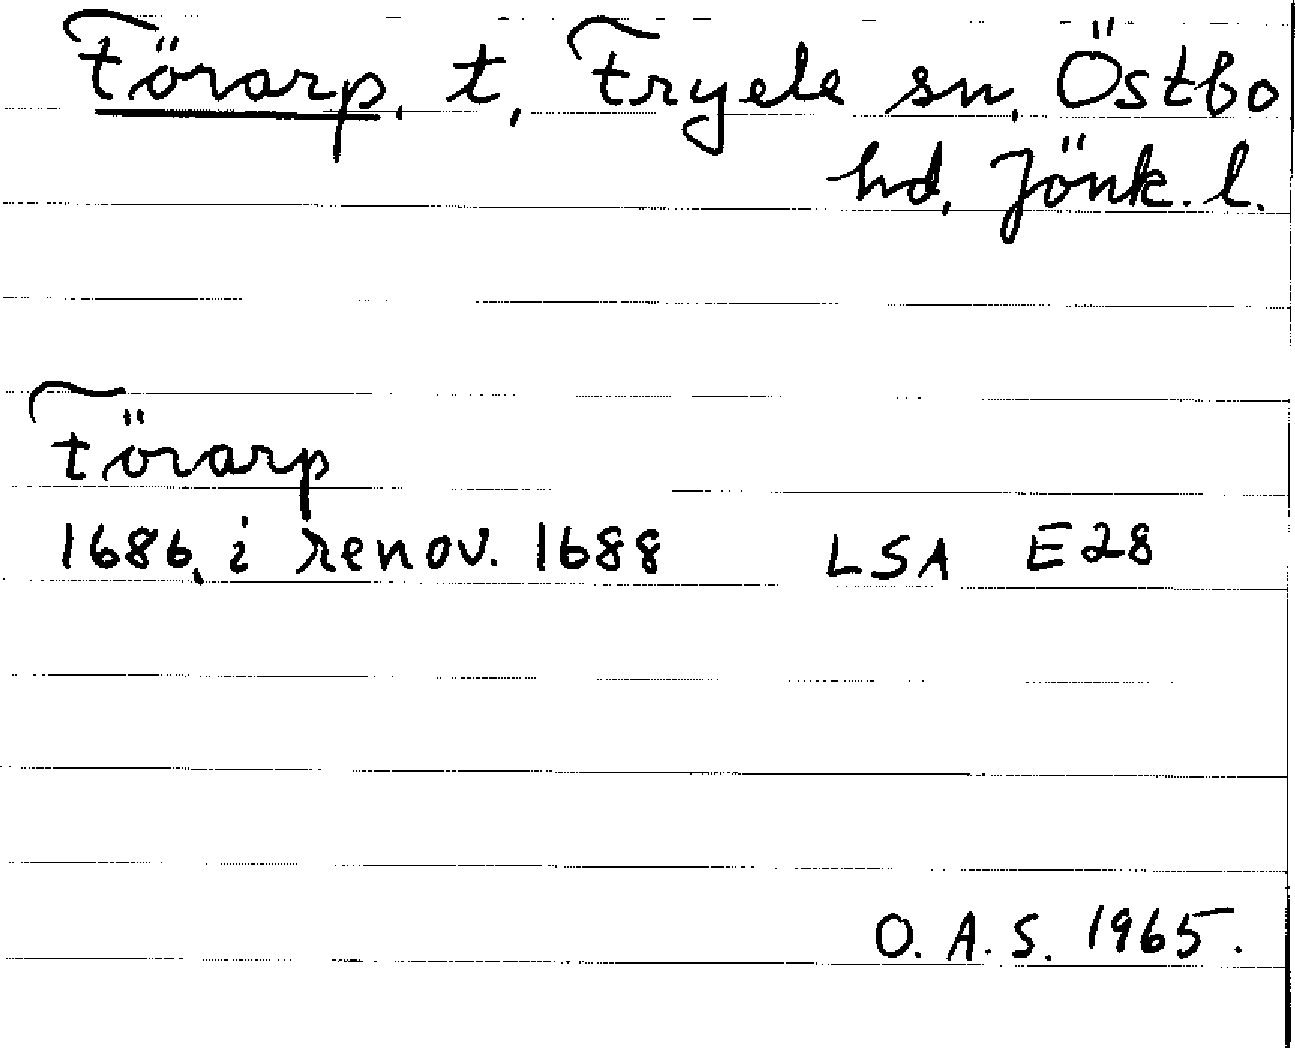 Förarp, t, Fryele sn, Östbo
hd, Jönk. l.
Förarp
1686, i renov. 1688 LSA E28
O. A. S. 1965.